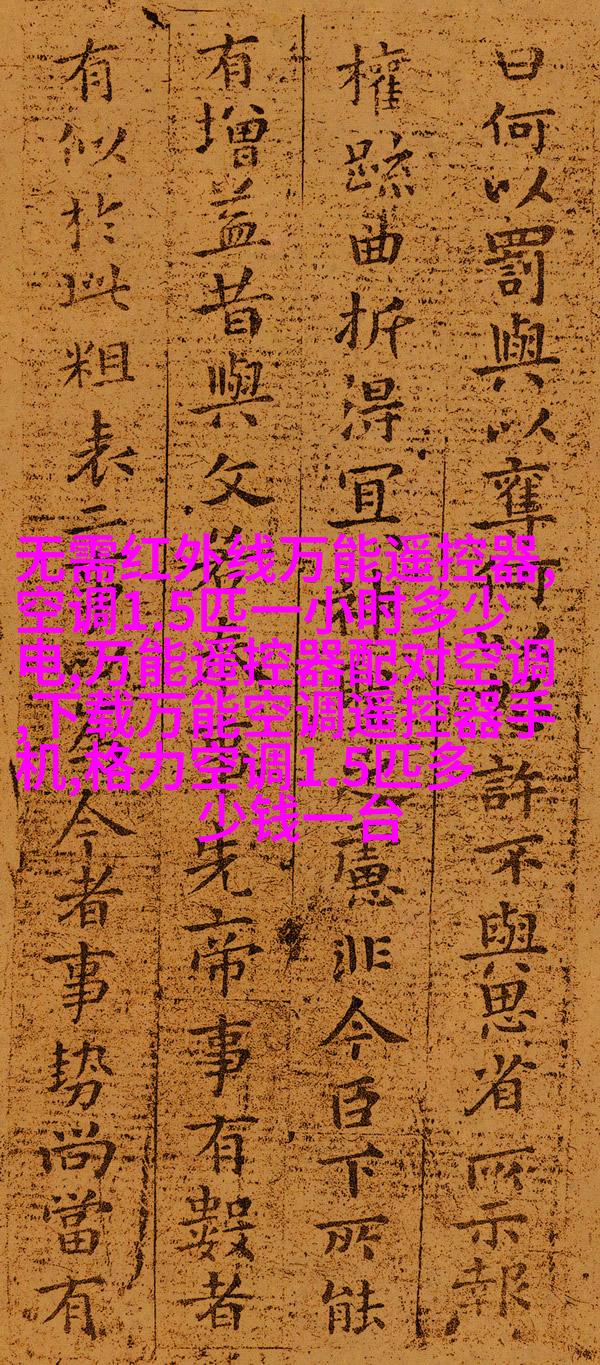 曰何以罰與以奪何以許不與思省所示報
權疏曲折得宜神慮非今臣下所能
有增益昔與文若奉事先帝事有數者
有似於此粗表二今者事勢尚當有
无需红外线万能遥控器,
空调1.5匹一小时多少
电,万能遥控器配对空调
,下载万能空调遥控器手
机,格力空调1.5匹多
少钱一台